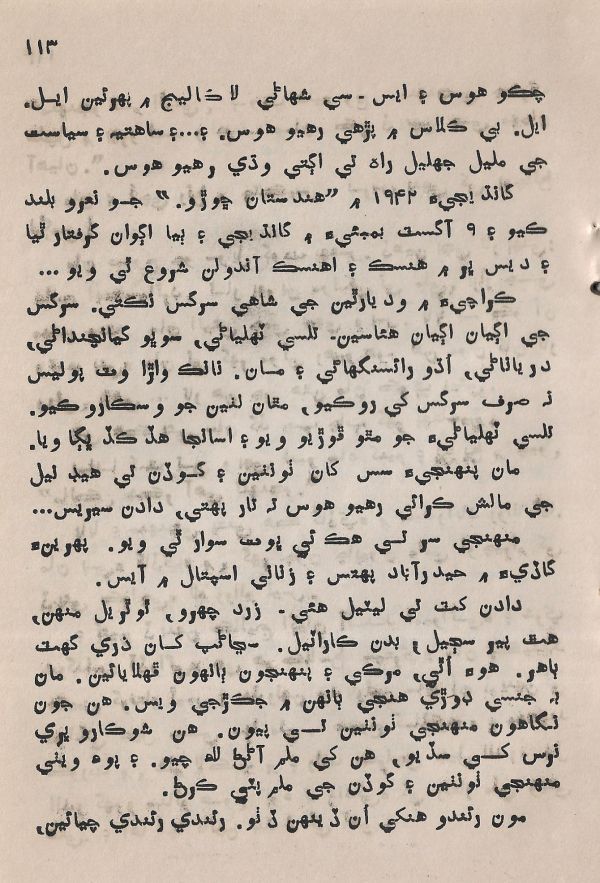 ١١٣
چڪو هوس ۽ ايس - سي شهاڻي لا ڪاليج ۾ پهرئين ايل.
ايل. بي ڪلاس ۾ پڙهي رهيو هوس. ۽...۽ ساهتيه ۽ سياست
جي مليل جهليل راه تي اڳتي وڌي رهيو هوس.
گانڌيجيءَ ١٩٤٢ ۾ ”هندستان ڇوڙو.“ جو نعرو بلند
ڪيو ۽ ٩ آگسٽ بمبئيءَ ۾ گانڌيجي ۽ ٻيا اڳوان گرفتار ٿيا
۽ ديس ڀر ۾ هنسڪ ۽ اهنسڪ آندولن شروع ٿي ويو ...
ڪراچيءَ ۾ وديارٿين جي شاهي سرگس نڪتي. سرگس
جي اڳيان اڳيان هئاسين - تلسي ٽهلياڻي، سوڀو گيانچنداڻي،
درياناڻي، اُڌو رائسنگهاڻي ۽ مان. نانڪ واڙا وٽ پوليس
نہ صرف سرگس کي روڪيو، مٿان لٺين جو وسڪارو ڪيو.
تلسي ٽهلياڻيءَ جو مٿو ڦوڙيو ويو ۽ اسانجا هڏ گڏ ڀڳا ويا.
مان پنهنجيءَ سس کان ٺوٺين ۽ گوڏن تي هيڊ تيل
جي مالش ڪرائي رهيو هوس تہ تار پهتي، دادن سيريس...
منهنجي سر تي هڪ ئي ڀوت سوار ٿي ويو. پهرينءَ
گاڏيءَ ۾ حيدرآباد پهتس ۽ زناني اسپتال ۾ آيس.
دادن کٽ تي ليٽيل هئي - زرد چهرو، ٿوٿريل منهن،
هٿ پير سڄيل، بدن ڪاراٽيل. سڃاڻپ کان ذري گهٽ
ٻاهر. هوءَ اُٿي، مرڪي ۽ پنهنجون ٻانهون ڦهلايائين. مان
بہ جنسي ڊوڙي هنجي ٻانهن ۾ جڪڙجي ويس. هن جون
نگاهون منهنجي ٺوٺين تي پيون. هن شوڪارو ڀري
نرس کي سڏيو، هن کي ملم آڻڻ لاءِ چيو. ۽ پوءِ ويٺي
منهنجي ٺوٺين ۽ گوڏن جي ملم پٽي ڪرڻ.
مون رئندو هنکي اُن ڏينهن ڏٺو. رئندي رئندي چيائين،